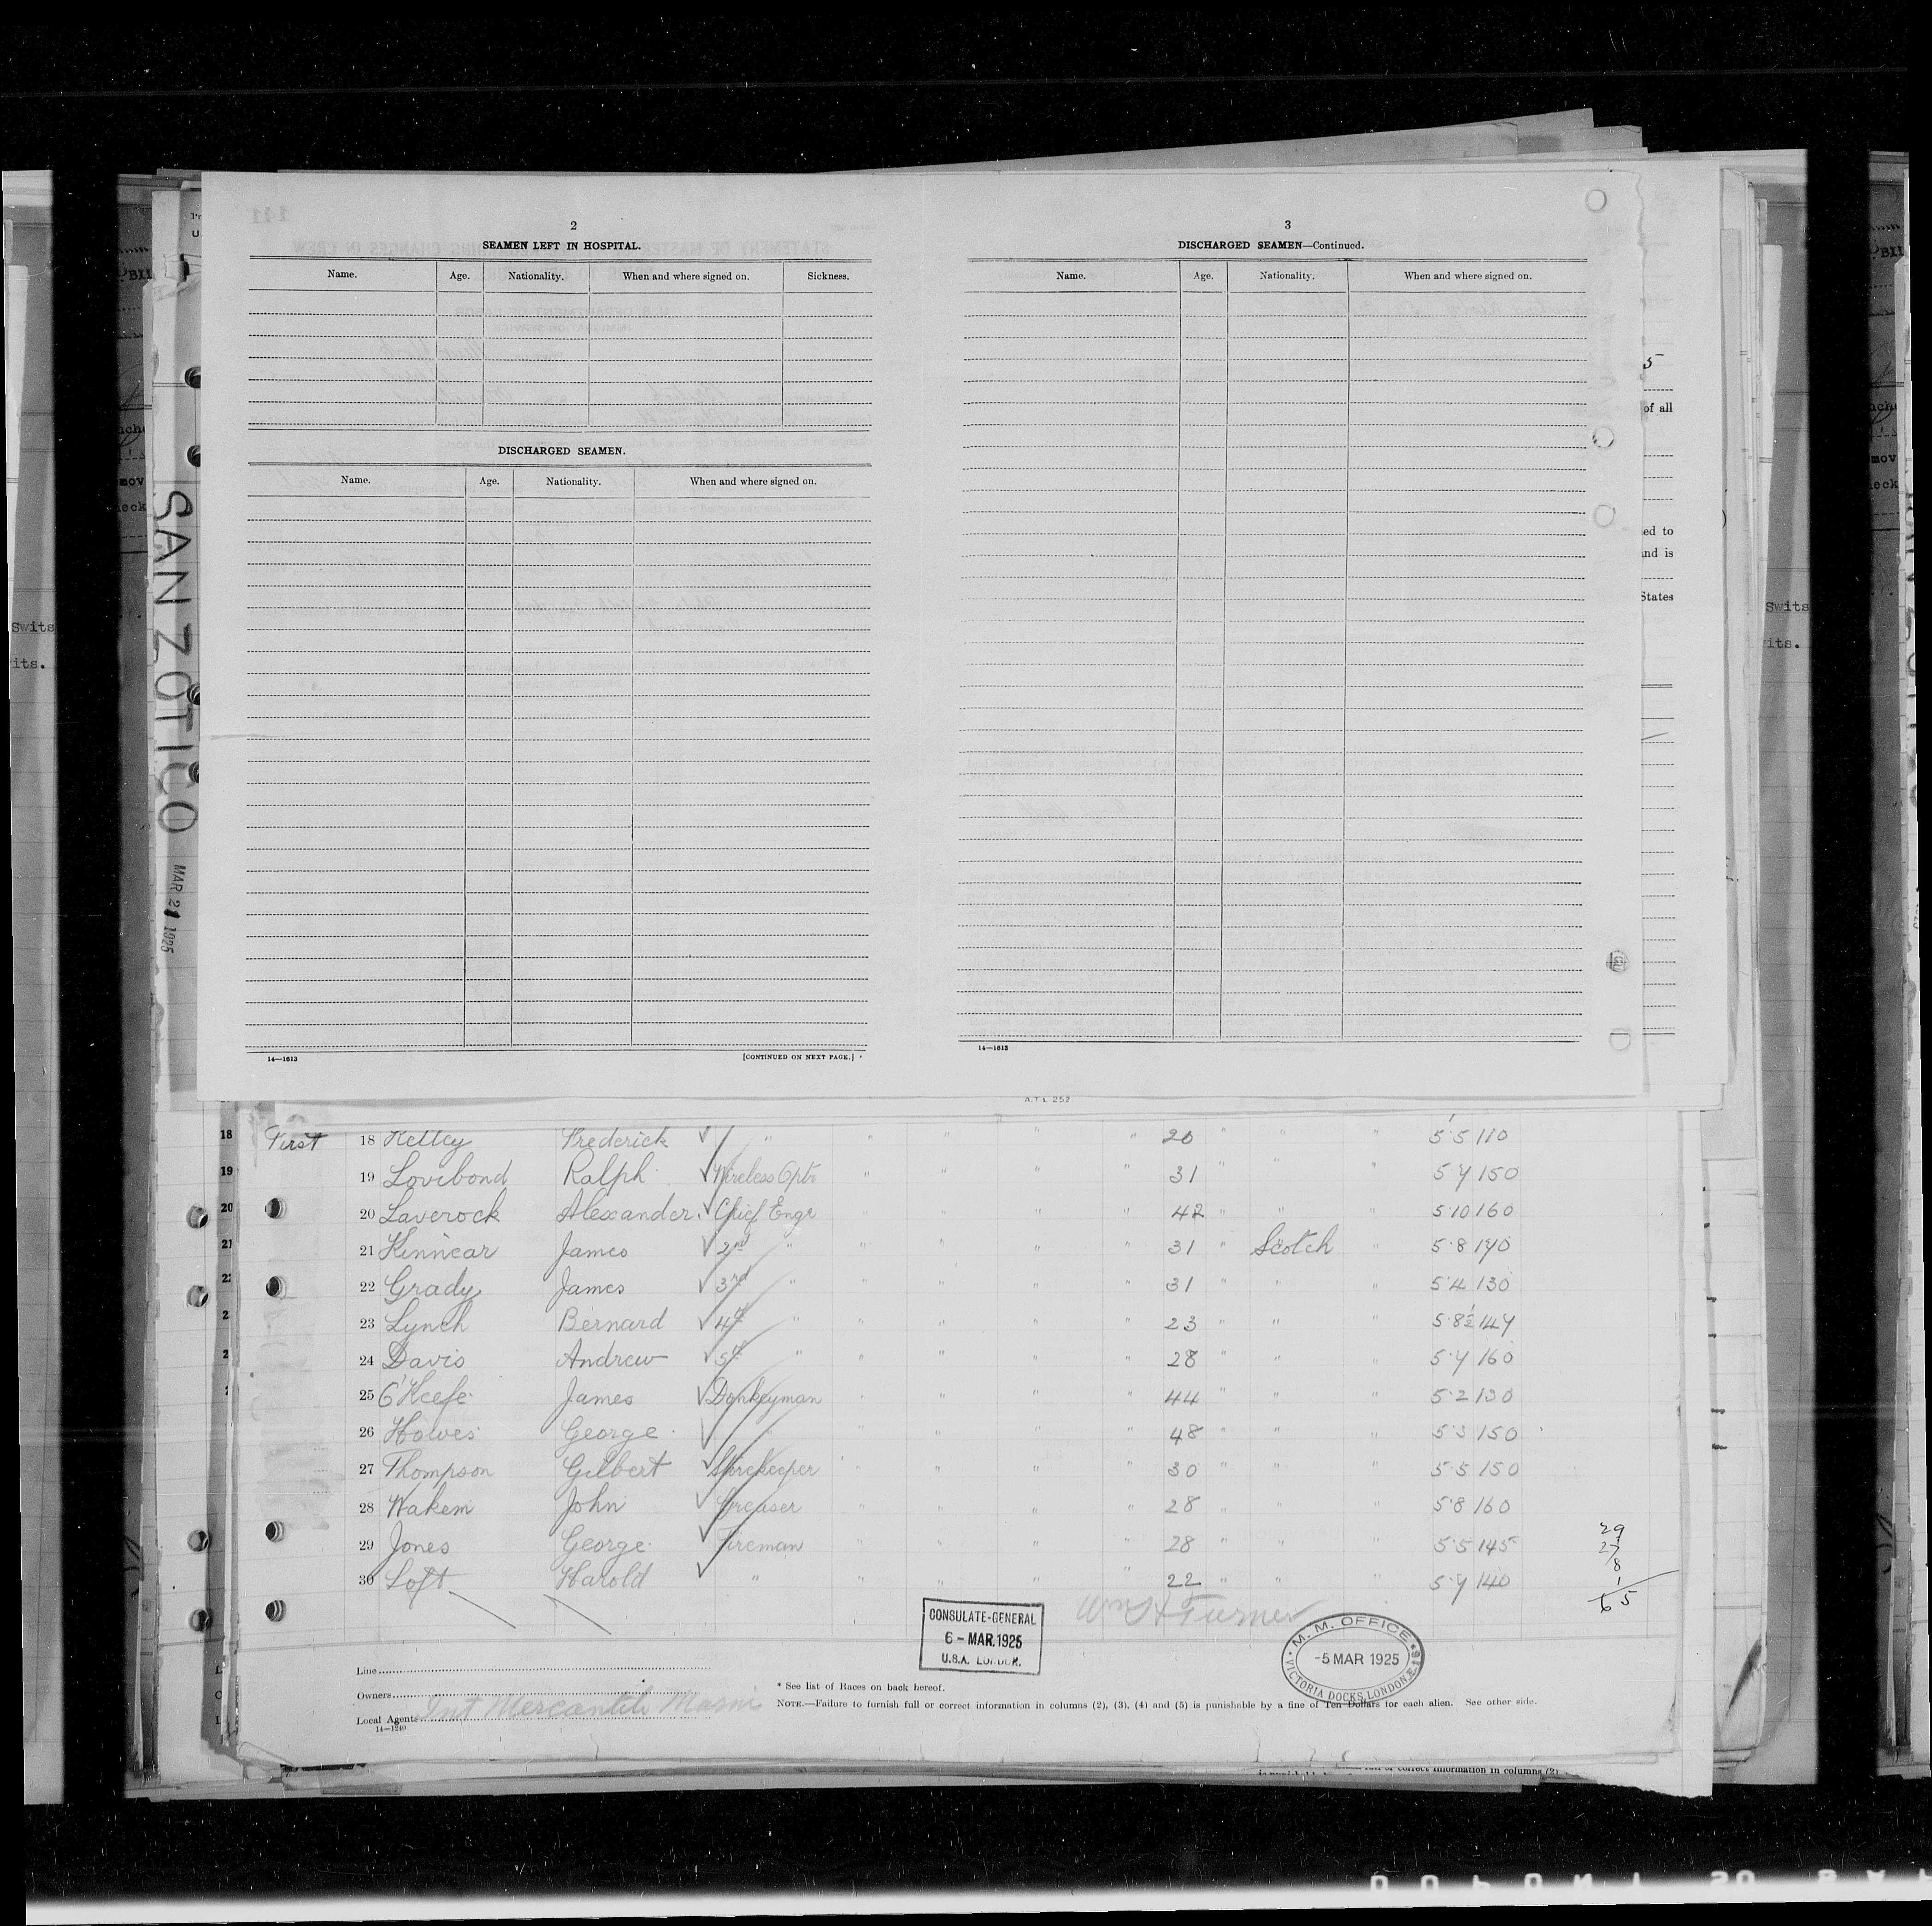 2
SEAMEN LEFT IN HOSPITAL.
Name. Age. Nationality. When and where signed on. Sickness.
DISCHARGED SEAMEN.
Name. Age. Nationality. When and where signed on.
14—1613 [CONTINUED ON NEXT PAGE.]
3
DISCHARGED SEAMEN—Continued.
Name. Age. Nationality. When and where signed on.
14—1613
5
of all
ed to
and is
States
SAN ZOTICO
MAR 21 1925
Swits
its.
A.T.L 252
18 First 18 Kelley Frederick ✓ " " " " " 20 " " " 5·5 110
19 19 Lovibond Ralph ✓ Wireless Optr " " " " 31 " " " 5·7 150
20 20 Laverock Alexander. ✓ Chief Engr " " " " 42 " " " 5·10 160
21 21 Kinnear James ✓ 2nd " " " " " 31 " Scotch " 5·8 170
22 Grady James ✓ 3rd " " " " " 31 " " " 5·4 130
23 Lynch Bernard ✓ 4th " " " " " 23 " " " 5·8½ 147
24 Davis Andrew ✓ 5th " " " " " 28 " " " 5·7 160
25 O'Keefe James ✓ Donkeyman " " " " 44 " " " 5·2 130
26 Howes George ✓ " " " " " 48 " " " 5·3 150
27 Thompson Gilbert ✓ Storekeeper " " " " 30 " " " 5·5 150
28 Wakem John ✓ Greaser " " " " 28 " " " 5·8 160
29 Jones George ✓ Fireman " " " " 28 " " " 5·5 145
30 Loft Harold ✓ " " " " " 22 " " " 5·7 140
29
27
8
1
65
Wm H Turner
CONSULATE-GENERAL
6 - MAR. 1925
U.S.A. LONDON.
M. M. OFFICE
-5 MAR 1925
VICTORIA DOCKS, LONDON, E. 16
Line
Owners
Local Agents Int Mercantile Marine
14—1240
* See list of Races on back hereof.
NOTE.—Failure to furnish full or correct information in columns (2), (3), (4) and (5) is punishable by a fine of Ten Dollars for each alien. See other side.
full or correct information in columns (2)